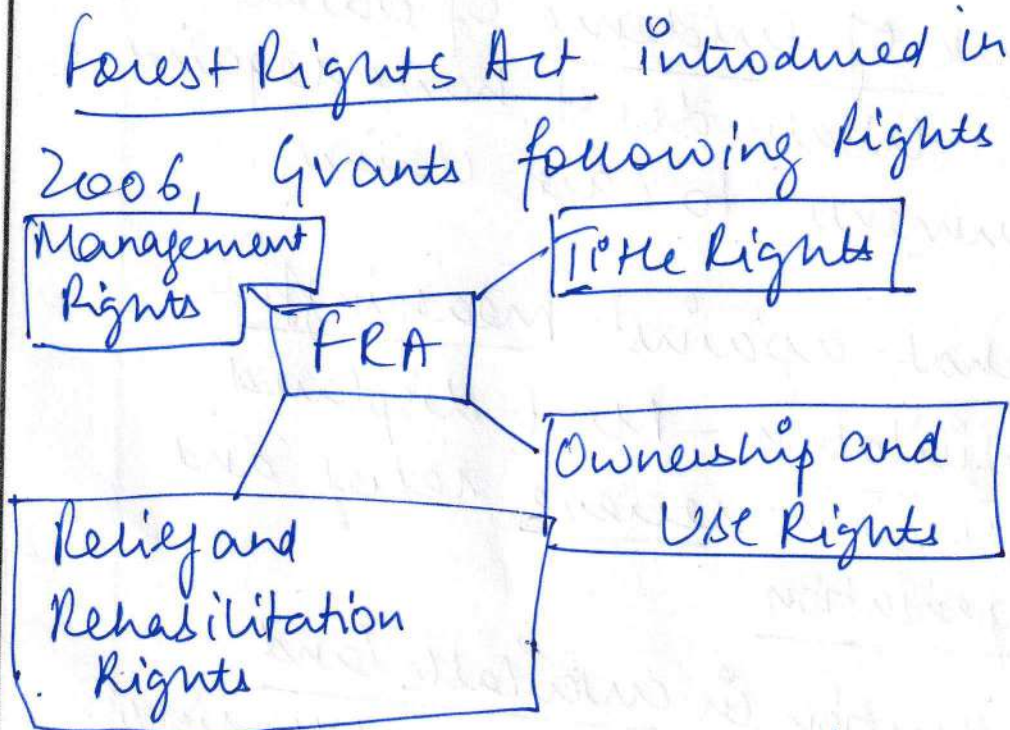 Forest Rights Act introduced in
2006, Grants following Rights
Management
Rights
Title Rights
FRA
Ownership and
Use Rights
Relief and
Rehabilitation
Rights